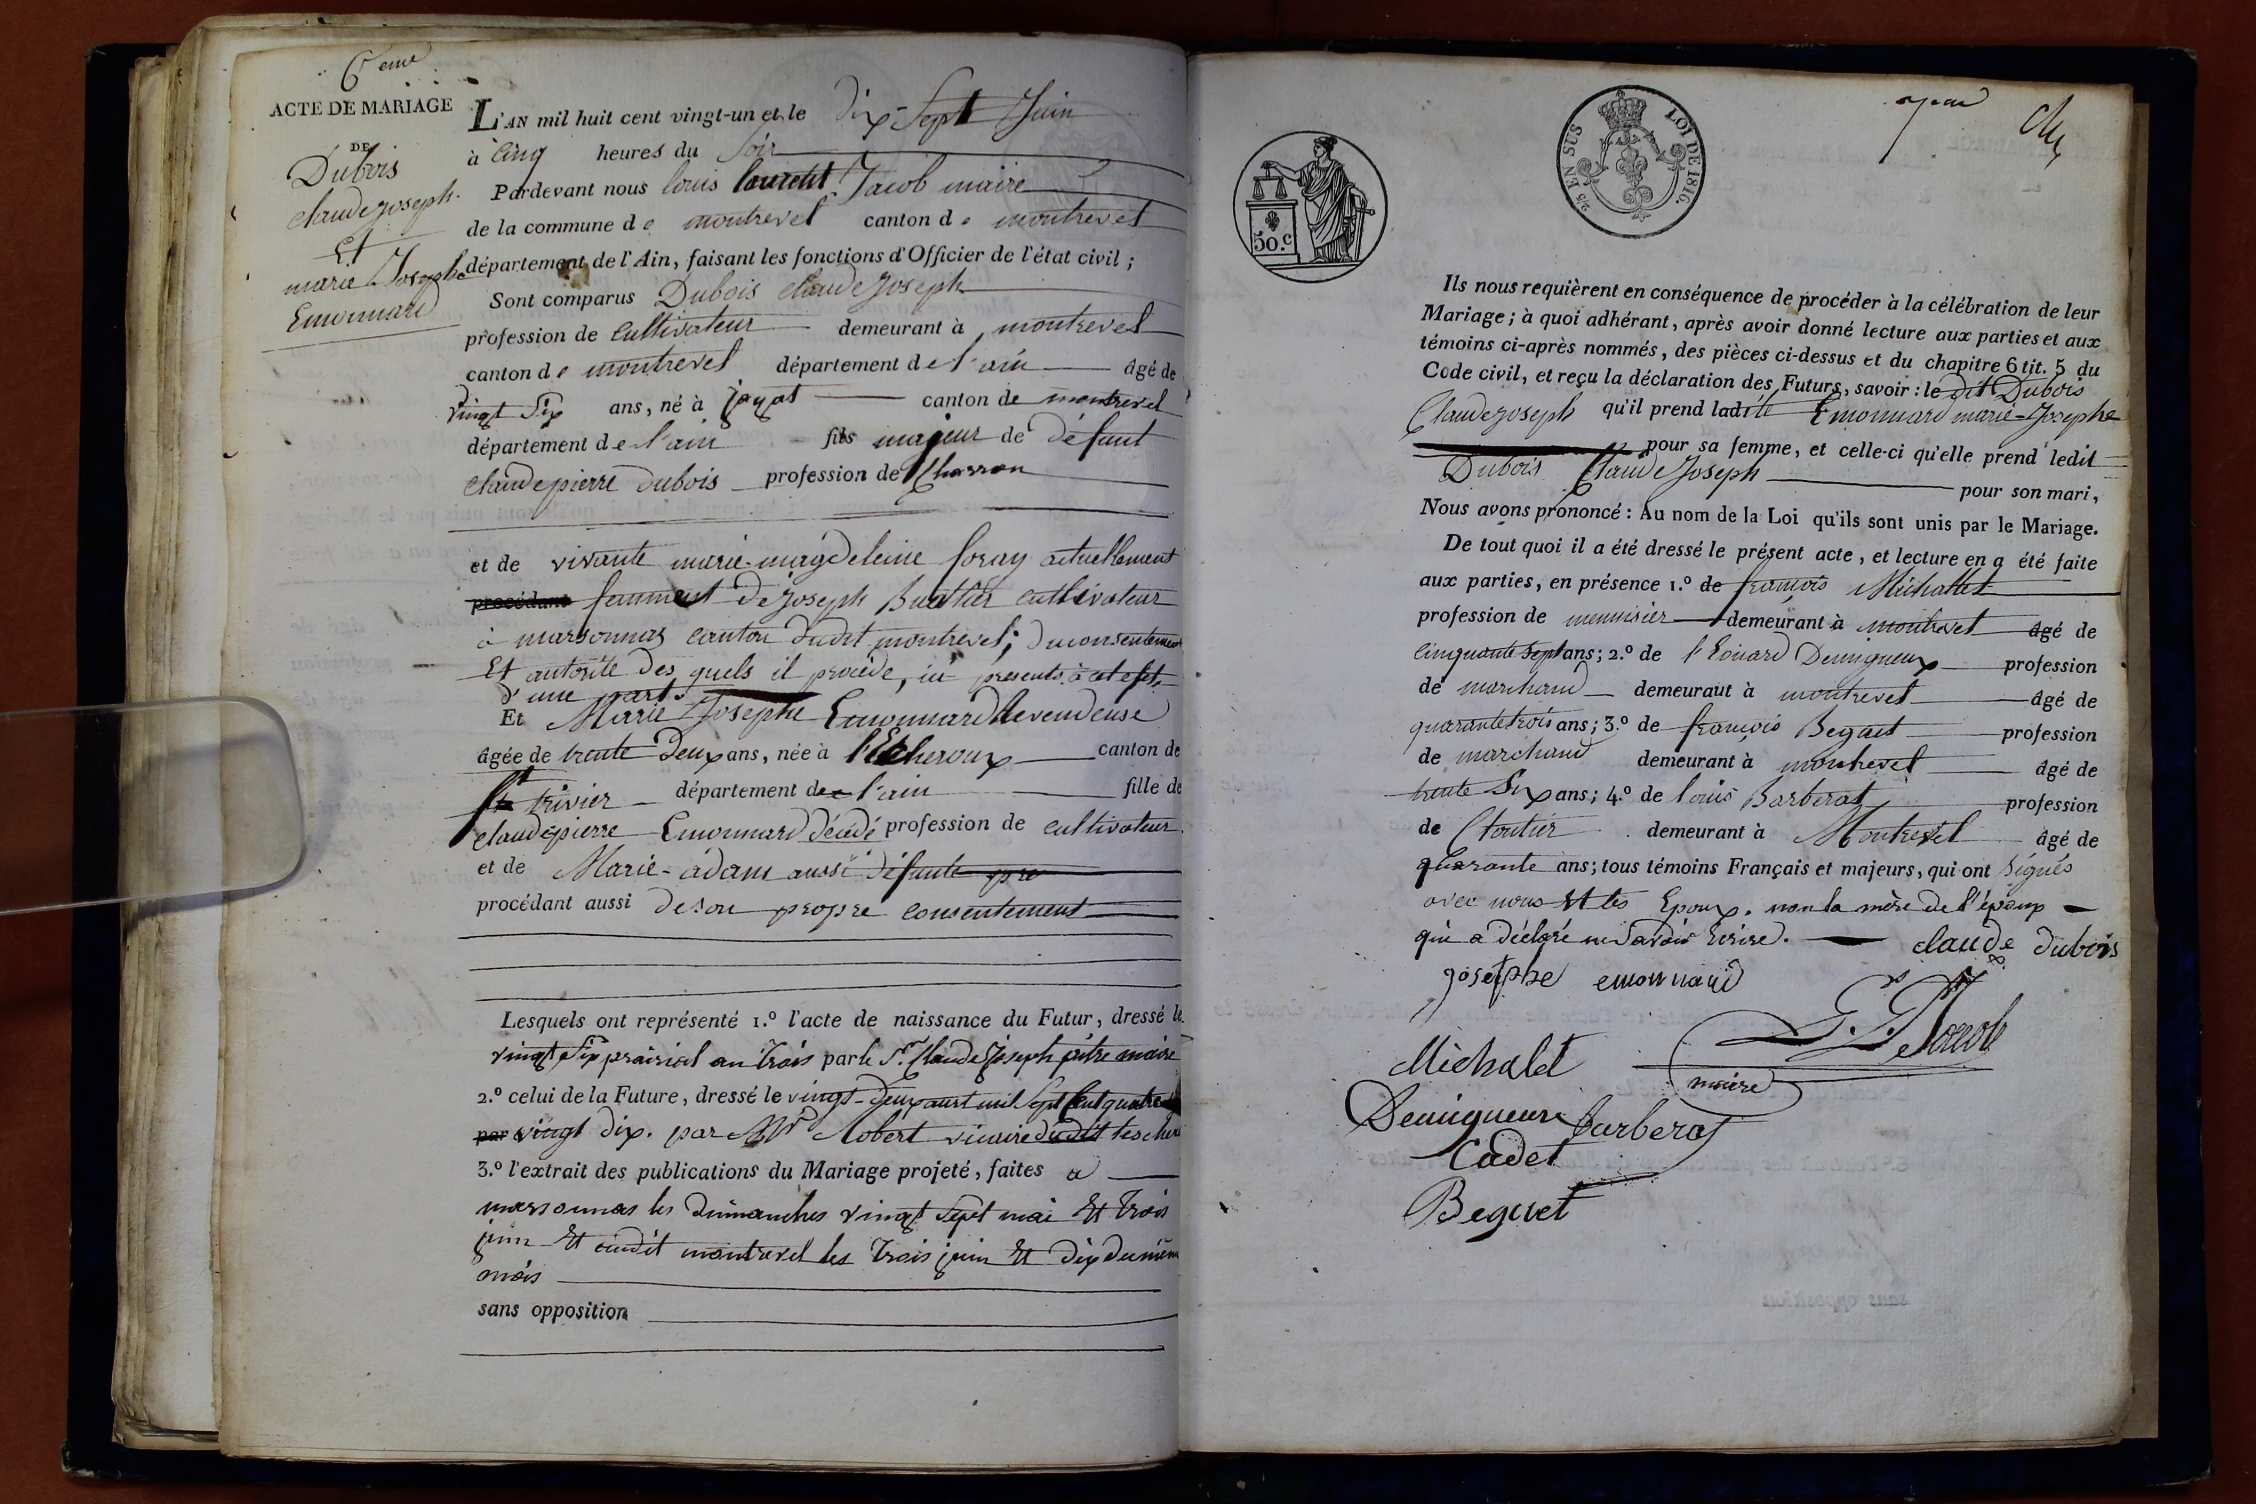 6eme
ACTE DE MARIAGE
DE
Dubois
claude joseph.
Et
marie Josephe
Emonnard
L'AN mil huit cent vingt-un et le dix-Sept Juin
à Cinq heures du Soir
Pardevant nous louis laurent Jacob maire
de la commune de montrevel canton de montrevel
département de l'Ain, faisant les fonctions d'Officier de l'état civil ;
Sont comparus Dubois Claude Joseph
profession de Cultivateur demeurant à montrevel
canton de montrevel département de l'ain âgé de
vingt Six ans, né à jayat canton de montrevel
département de l'ain fils majeur de défunt
claude pierre dubois profession de Charron
et de vivante marie-magdeleine foray actuellement
procédant femme de joseph Buathier cultivateur
à marsonnas canton dudit montrevel ; du consentement
Et autorité des quels il procède, ici présents à cet effet,
d'une part.
Et Marie Josephe Emonnard Revendeuse
âgée de trente Deux ans, née à l'Escheroux canton de
St trivier département de l'ain fille de
claude pierre Emonnard décédé profession de cultivateur
et de Marie-adam aussi défunte
procédant aussi de son propre consentement
Lesquels ont représenté 1.º l'acte de naissance du Futur, dressé le
vingt Six prairial an trois par le Sr. Claude Joseph pitre maire
2.º celui de la Future, dressé le vingt-deux aout mil Sept Cent quatre
par vingt dix. par Mr Robert vicaire dudit
3.º l'extrait des publications du Mariage projeté, faites a
marsonnas les dimanches vingt Sept mai Et trois
juin Et audit montrevel les trois juin Et dix du même
mois
sans opposition
25 EN SUS
LOI DE 1816.
50.c
7eme
Ils nous requièrent en conséquence de procéder à la célébration de leur
Mariage ; à quoi adhérant, après avoir donné lecture aux parties et aux
témoins ci-après nommés, des pièces ci-dessus et du chapitre 6 tit. 5 du
Code civil, et reçu la déclaration des Futurs, savoir : le dit Dubois
Claude joseph qu'il prend ladite Emonnard marie-Josephe
pour sa femme, et celle-ci qu'elle prend ledit
Dubois Claude Joseph pour son mari,
Nous avons prononcé : Au nom de la Loi qu'ils sont unis par le Mariage.
De tout quoi il a été dressé le présent acte, et lecture en a été faite
aux parties, en présence 1.º de françois Michallet
profession de menuisier demeurant à montrevel âgé de
cinquante Sept ans ; 2.º de Demigneux profession
de marchand demeuraut à montrevel âgé de
quarante trois ans ; 3.º de françois Beguet profession
de marchand demeurant à montrevel âgé de
trente Six ans ; 4.º de louis Barberat profession
de Cloutier demeurant à Montrevel âgé de
quarante ans ; tous témoins Français et majeurs, qui ont Signés
avec nous Et les Epoux. non la mère de l'époux
qui a déclaré ne Savoir Ecrire.
claude dubois
josephe emonnard
Jacob
maire
Michalet
Demigneux
Cadet
Barberat
Beguet